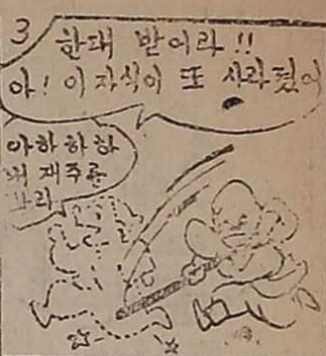 3
한대 받어라 !!
아! 이 자식이 또 사라졌어
아하하하
내 재주를
보라